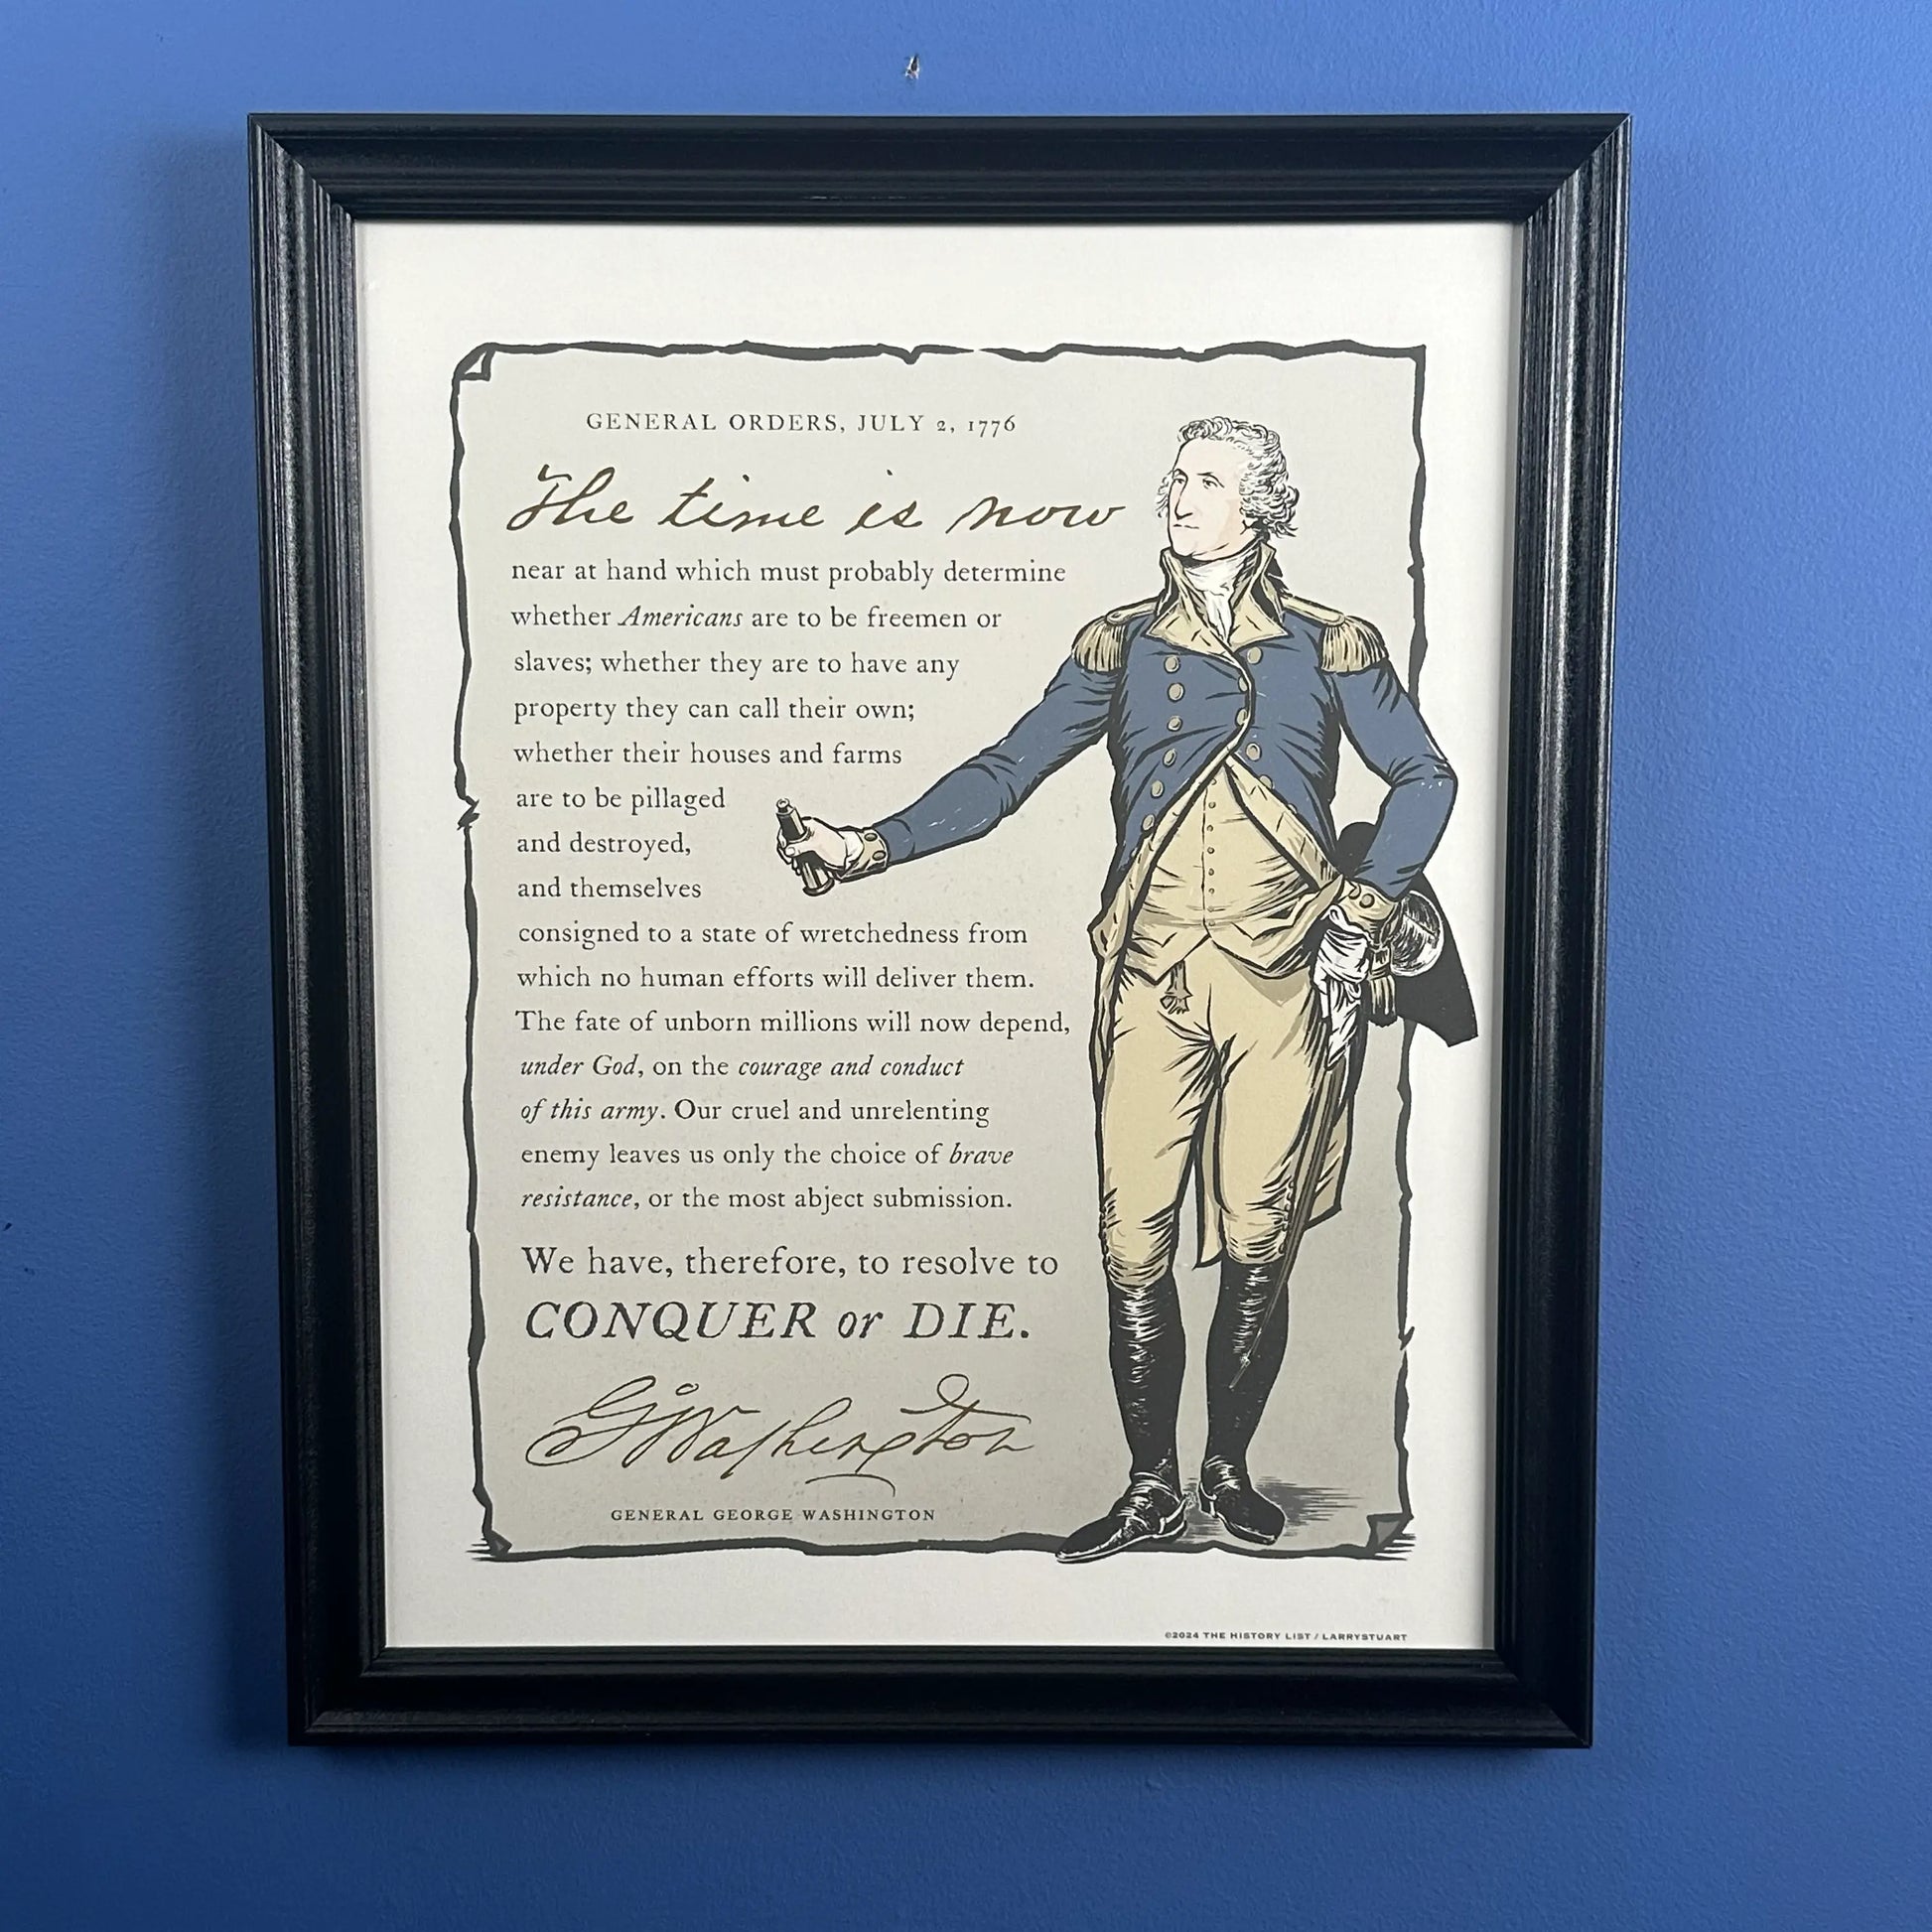 GENERAL ORDERS, JULY 2, 1776
The time is now
near at hand which must probably determine
whether Americans are to be freemen or
slaves; whether they are to have any
property they can call their own;
whether their houses and farms
are to be pillaged
and destroyed,
and themselves
consigned to a state of wretchedness from
which no human efforts will deliver them.
The fate of unborn millions will now depend,
under God, on the courage and conduct
of this army. Our cruel and unrelenting
enemy leaves us only the choice of brave
resistance, or the most abject submission.
We have, therefore, to resolve to
CONQUER or DIE.
G Washington
GENERAL GEORGE WASHINGTON
©2024 THE HISTORY LIST / LARRYSTUART